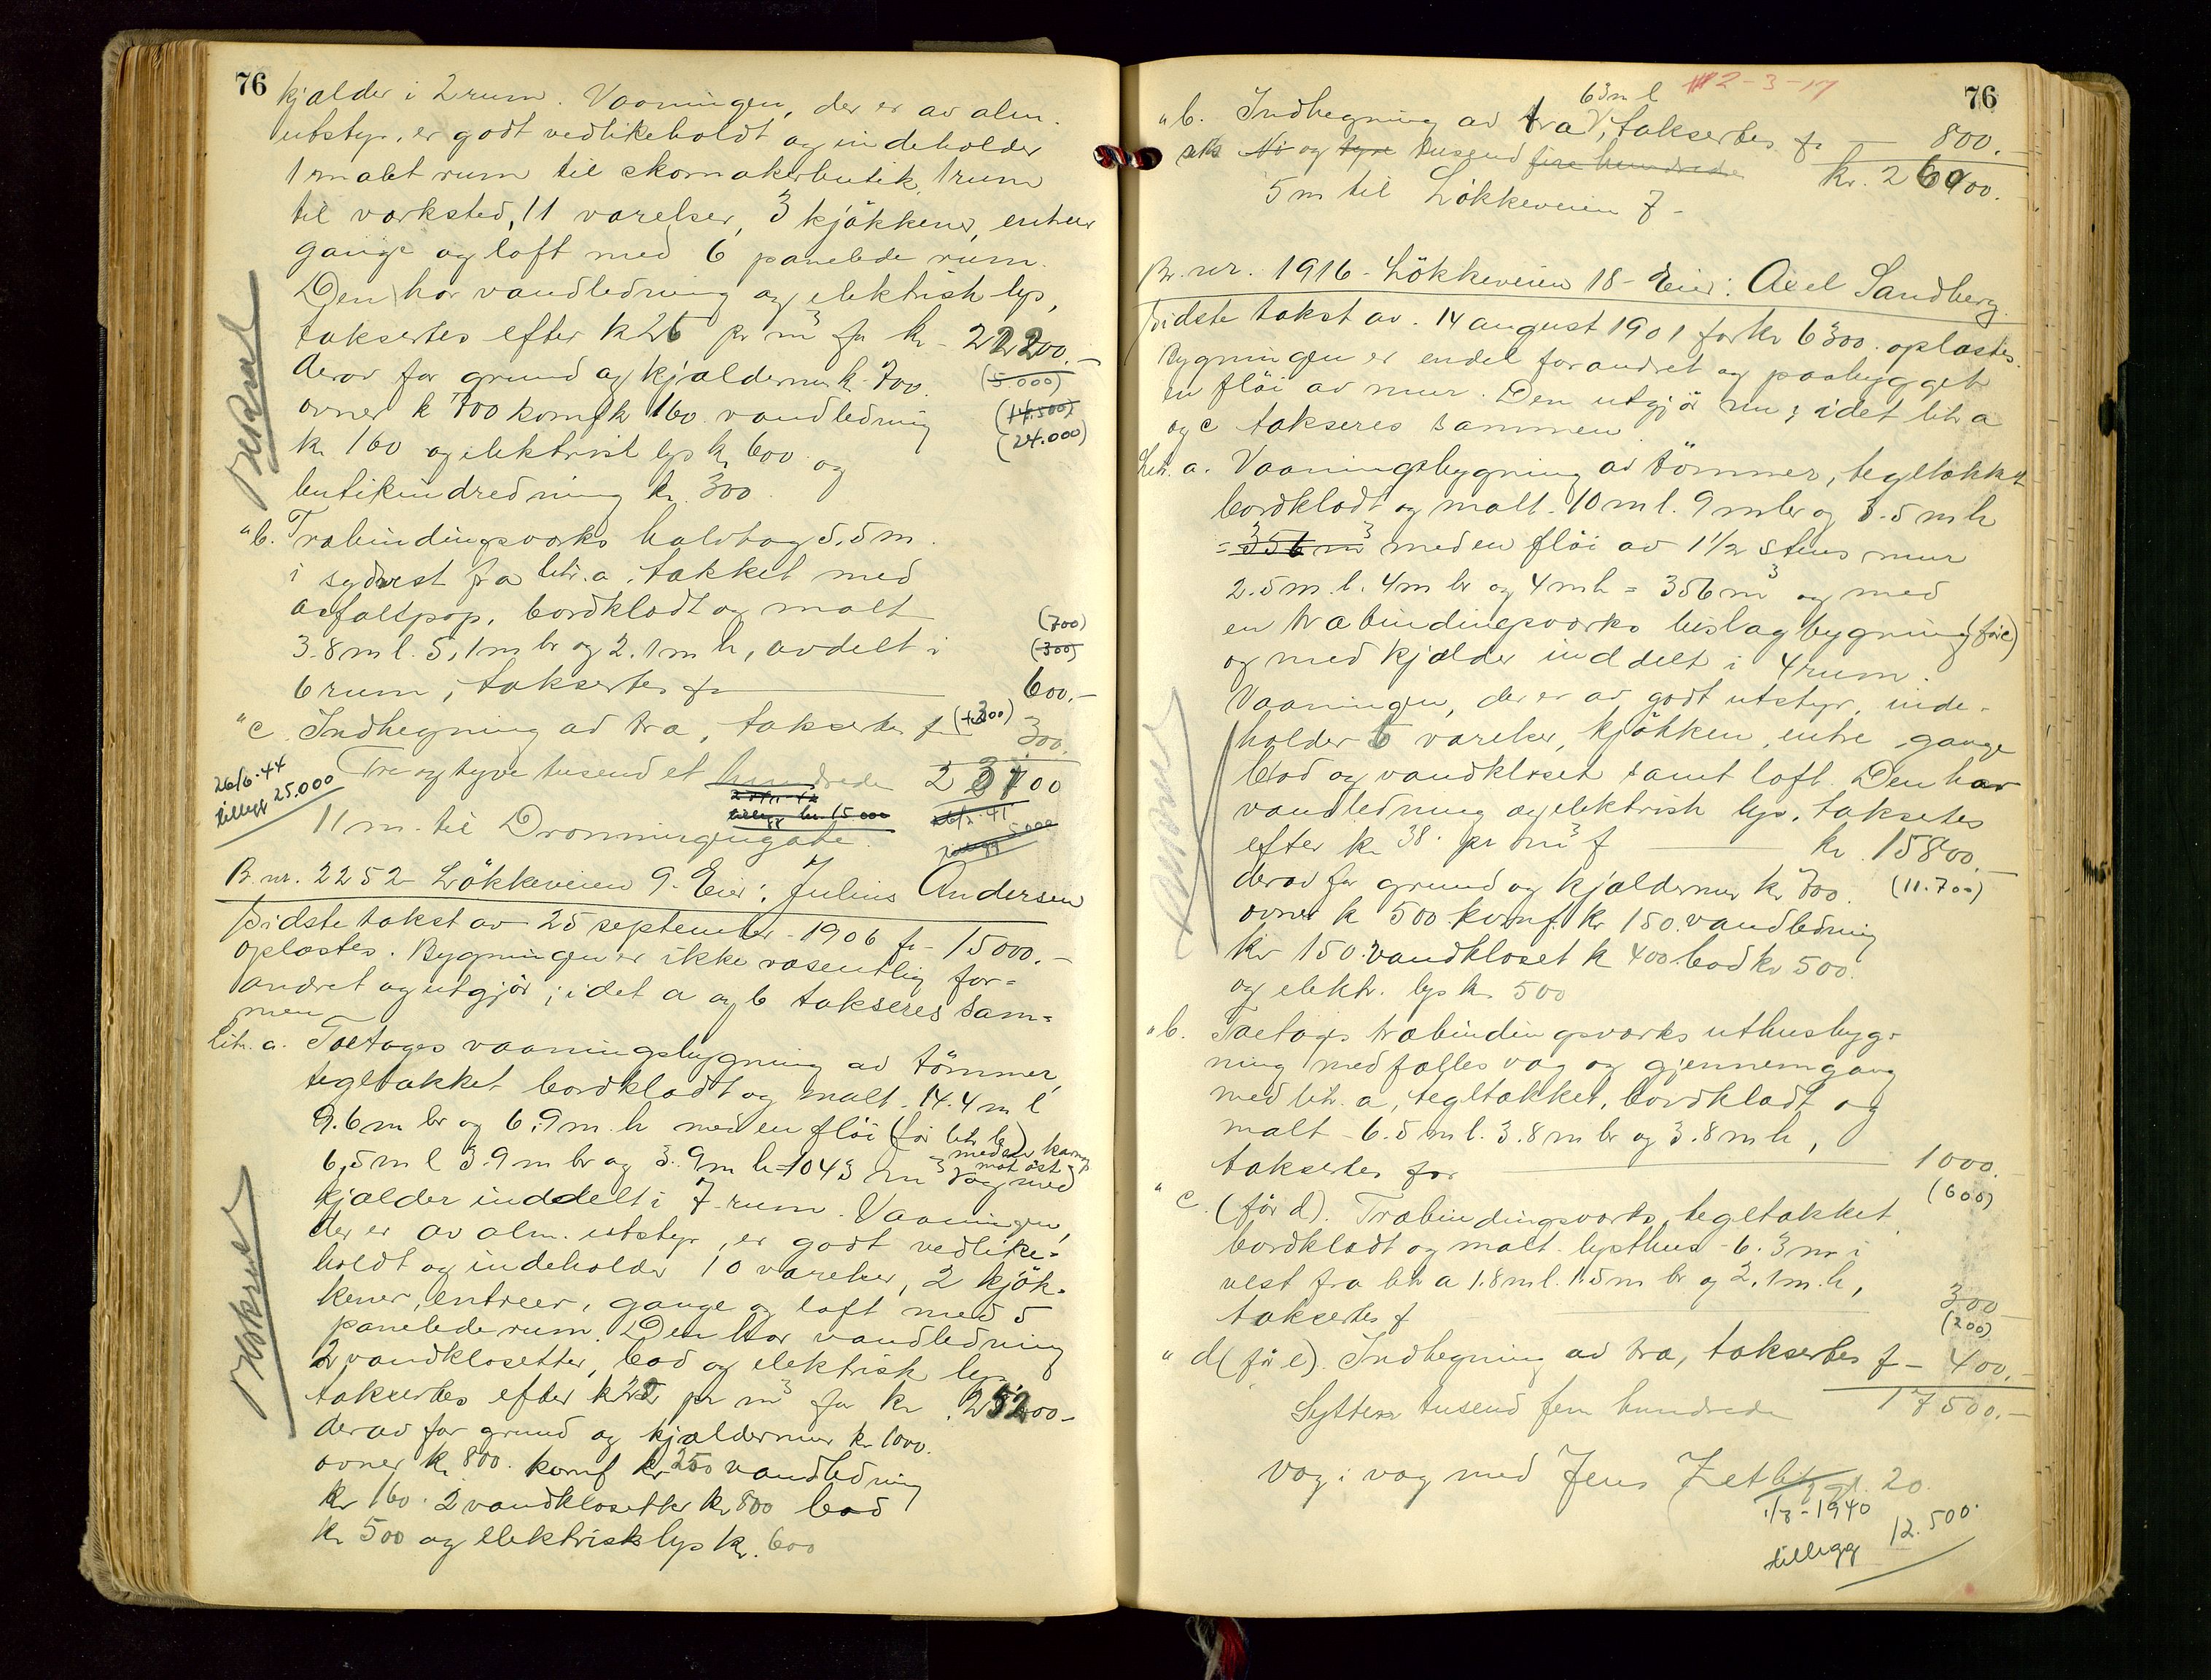 76
kjælder i 2 rum. Vaaningen, der er av alm.
utstyr, er godt vedlikeholdt og indeholder
1 malet rum til skomakerbutik, 1 rum
til verksted, 11 værelser, 3 kjøkkener, entreer
gange og loft med 6 panelede rum.
Den har vandledning og elektrisk lys,
taksertes efter kr 26 pr m³ for kr - 22200.-
derav for grund og kjældermur kr 700. (5.000)
ovner kr 700 komf kr 160. vandledning (14.500)
kr 160 og elektrisk lys kr 600 og (24.000)
butikindredning kr. 300
" b. Træbindingsverks halvtag 5,5 m.
i sydvest fra litr. a, tækket med
asfaltpap, bordklædt og malt
3.8 m l. 5,1 m br og 2.1 m h, avdelt i (700) (300)
6 rum, taksertes for 600.-
" c. Indhegning av træ, taksertes for 300.
Tre og tyve tusend et hundrede 23100
26/6-44
tillegg 25.000
tillegg kr. 15 000
5000
11 m. til Dronningensgate.
Br. nr. 2252 Løkkeveien 9. Eier: Julius Andersen
Sidste takst av 25 september 1906 for - 15000.-
oplæstes. Bygningen er ikke væsentlig for=
andret og utgjør; idet a og b takseres sam=
men
Litr. a. Toetages vaaningsbygning av tømmer,
tegltækket bordklædt og malt. 14.4 m l
9.6 m br og 6.9 m. h med en fløi (før litr b)
med en karnap mot øst
6,5 m l 3.9 m br og 3.9 m h = 1043 m³ og med
kjælder inddelt i 7 rum. Vaaningen,
der er av alm. utstyr, er godt vedlike=
holdt og indeholder 10 værelser, 2 kjøk=
kener, entreer, gange og loft med 5
panelede rum. Den har vandledning
2 vandklosetter, bad og elektrisk lys
taksertes efter kr pr m³ for kr. 25200-
derav for grund og kjældermur kr 1000.
ovner kr. 800. komf kr 250 vandledning
kr 160. 2 vandklosetter kr 800 bad
kr 500 og elektrisk lys kr. 600
76
2-3-17
63 m l
" b. Indhegning av træ, taksertes for - 800.-
seks og tyve tusend fire hundrede kr. 26000.
5 m til Løkkeveien 7 -
Br. nr. 1916 - Løkkeveien 18 - Eier: Axel Sandberg
Sidste takst av. 14 august 1901 for kr 6300. oplæstes.
Bygningen er endel forandret og paabygget
en fløi av mur. Den utgjør nu; idet litr a
og c takseres sammen.
Litr. a. Vaaningsbygning av tømmer, tegltækket
bordklædt og malt. 10 m l. 9 m br og 3.5 m h
= 356 m³ med en fløi av 1½ stens mur
2.5 m. l. 4 m br og 4 m h = 356 m³ og med
en træbindingsverks bislagbygning (før c)
og med kjælder inddelt i 4 rum.
Vaaningen, der er av godt utstyr, inde-
holder 6 værelser, kjøkken, entre, gange
bad og vandkloset samt loft. Den har
vandledning og elektrisk lys, taksertes
efter kr 38. pr m³ f kr. 15800.-
derav for grund og kjældermur kr 700. (11.700)
ovner kr 500. komf. kr 150. vandledning
kr 150. vandkloset kr 400 bad kr 500.
og elektr. lys kr 500
" b. Toetages træbindingsverks uthusbyg-
ning med fælles væg og gjennemgang
med litr. a, tegltækket, bordklædt og
malt - 6.5 m l. 3.8 m br og 3.8 m h,
taksertes for 1000.-
(600)
" c. (før d). Træbindingsverks, tegltækket,
bordklædt og malt lysthus - 6.3 m i
vest fra litr a 1.8 m l. 1.5 m br og 2.1 m. h,
taksertes f 300
(200)
" d (før e). Indhegning av træ, taksertes f - 400.-
Sytten tusend fem hundrede 17500.-
Væg i væg med Jens Zetlitz gt. 20
1/3-1940
tillegg 12.500.